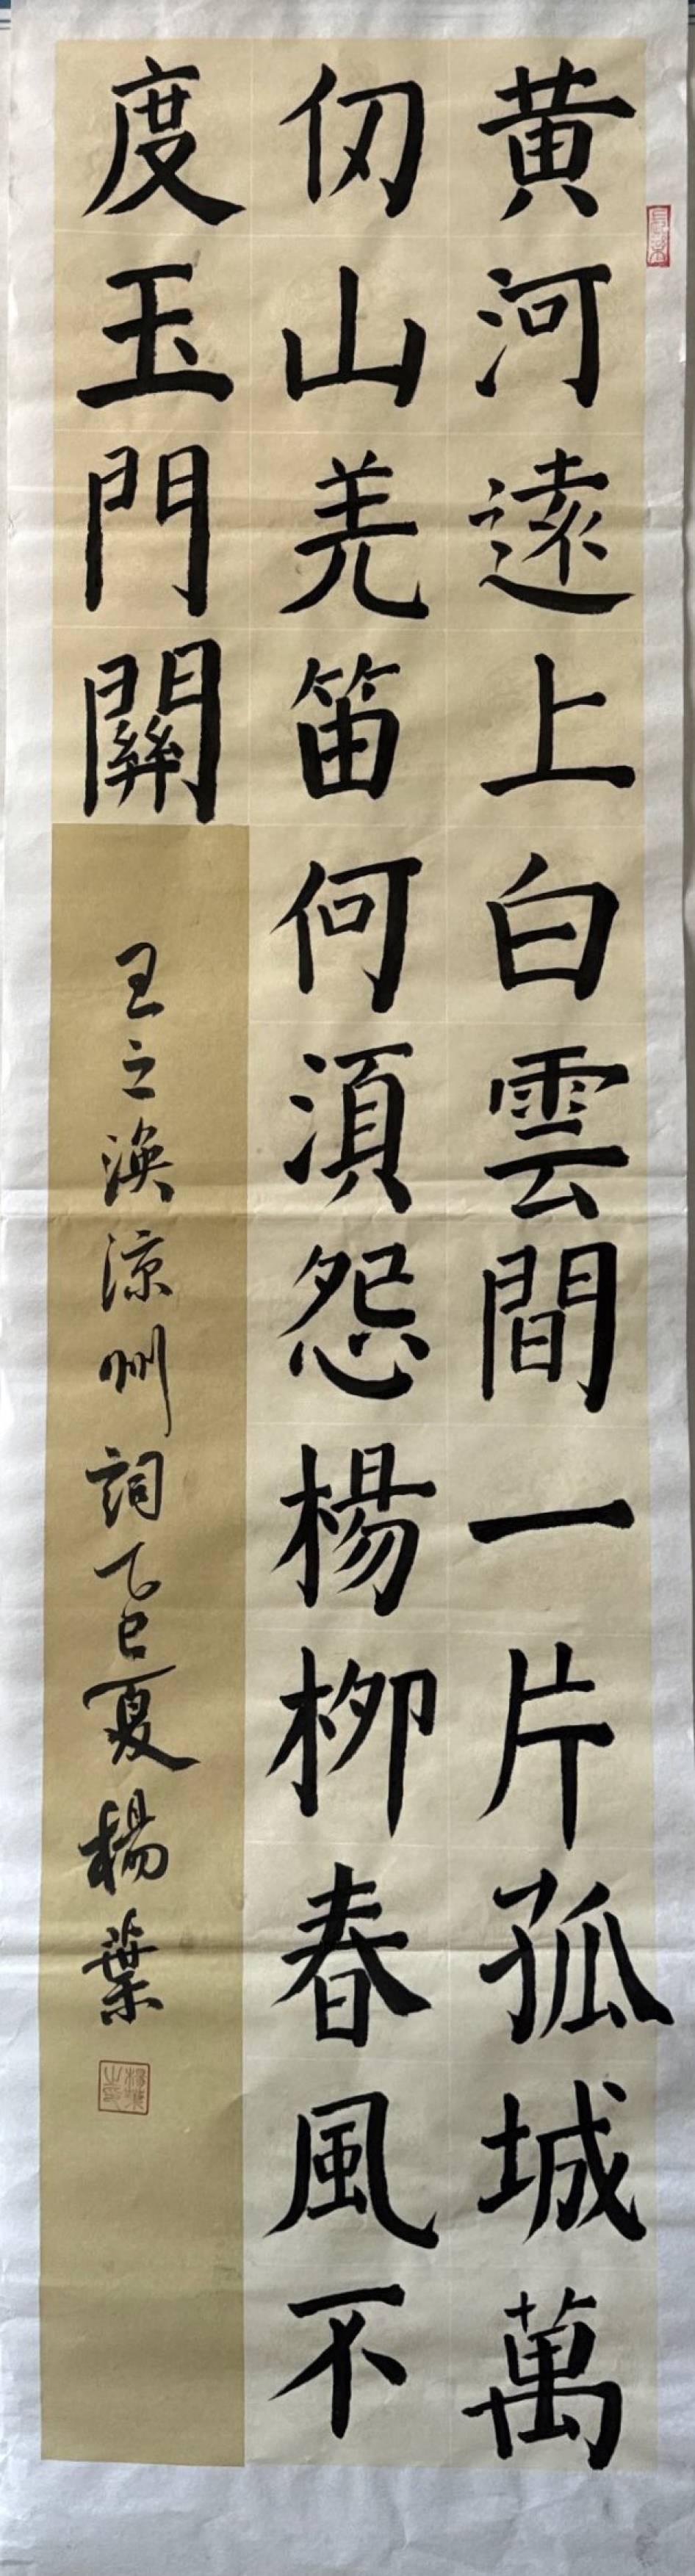 黄河遠上白雲間一片孤城萬
仞山羌笛何須怨楊柳春風不
度玉門關
王之涣涼州詞乙巳夏楊葉